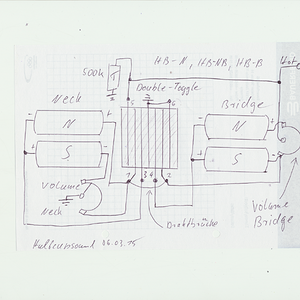 HB-N, HB-NB, HB-B
Hot
500k
T
Double-Toggle
5 6
Neck
Bridge
- N +
- N +
- S +
- S +
1 3 4 2
Volume
Neck
Drahtbrücke
Volume
Bridge
06.03.15